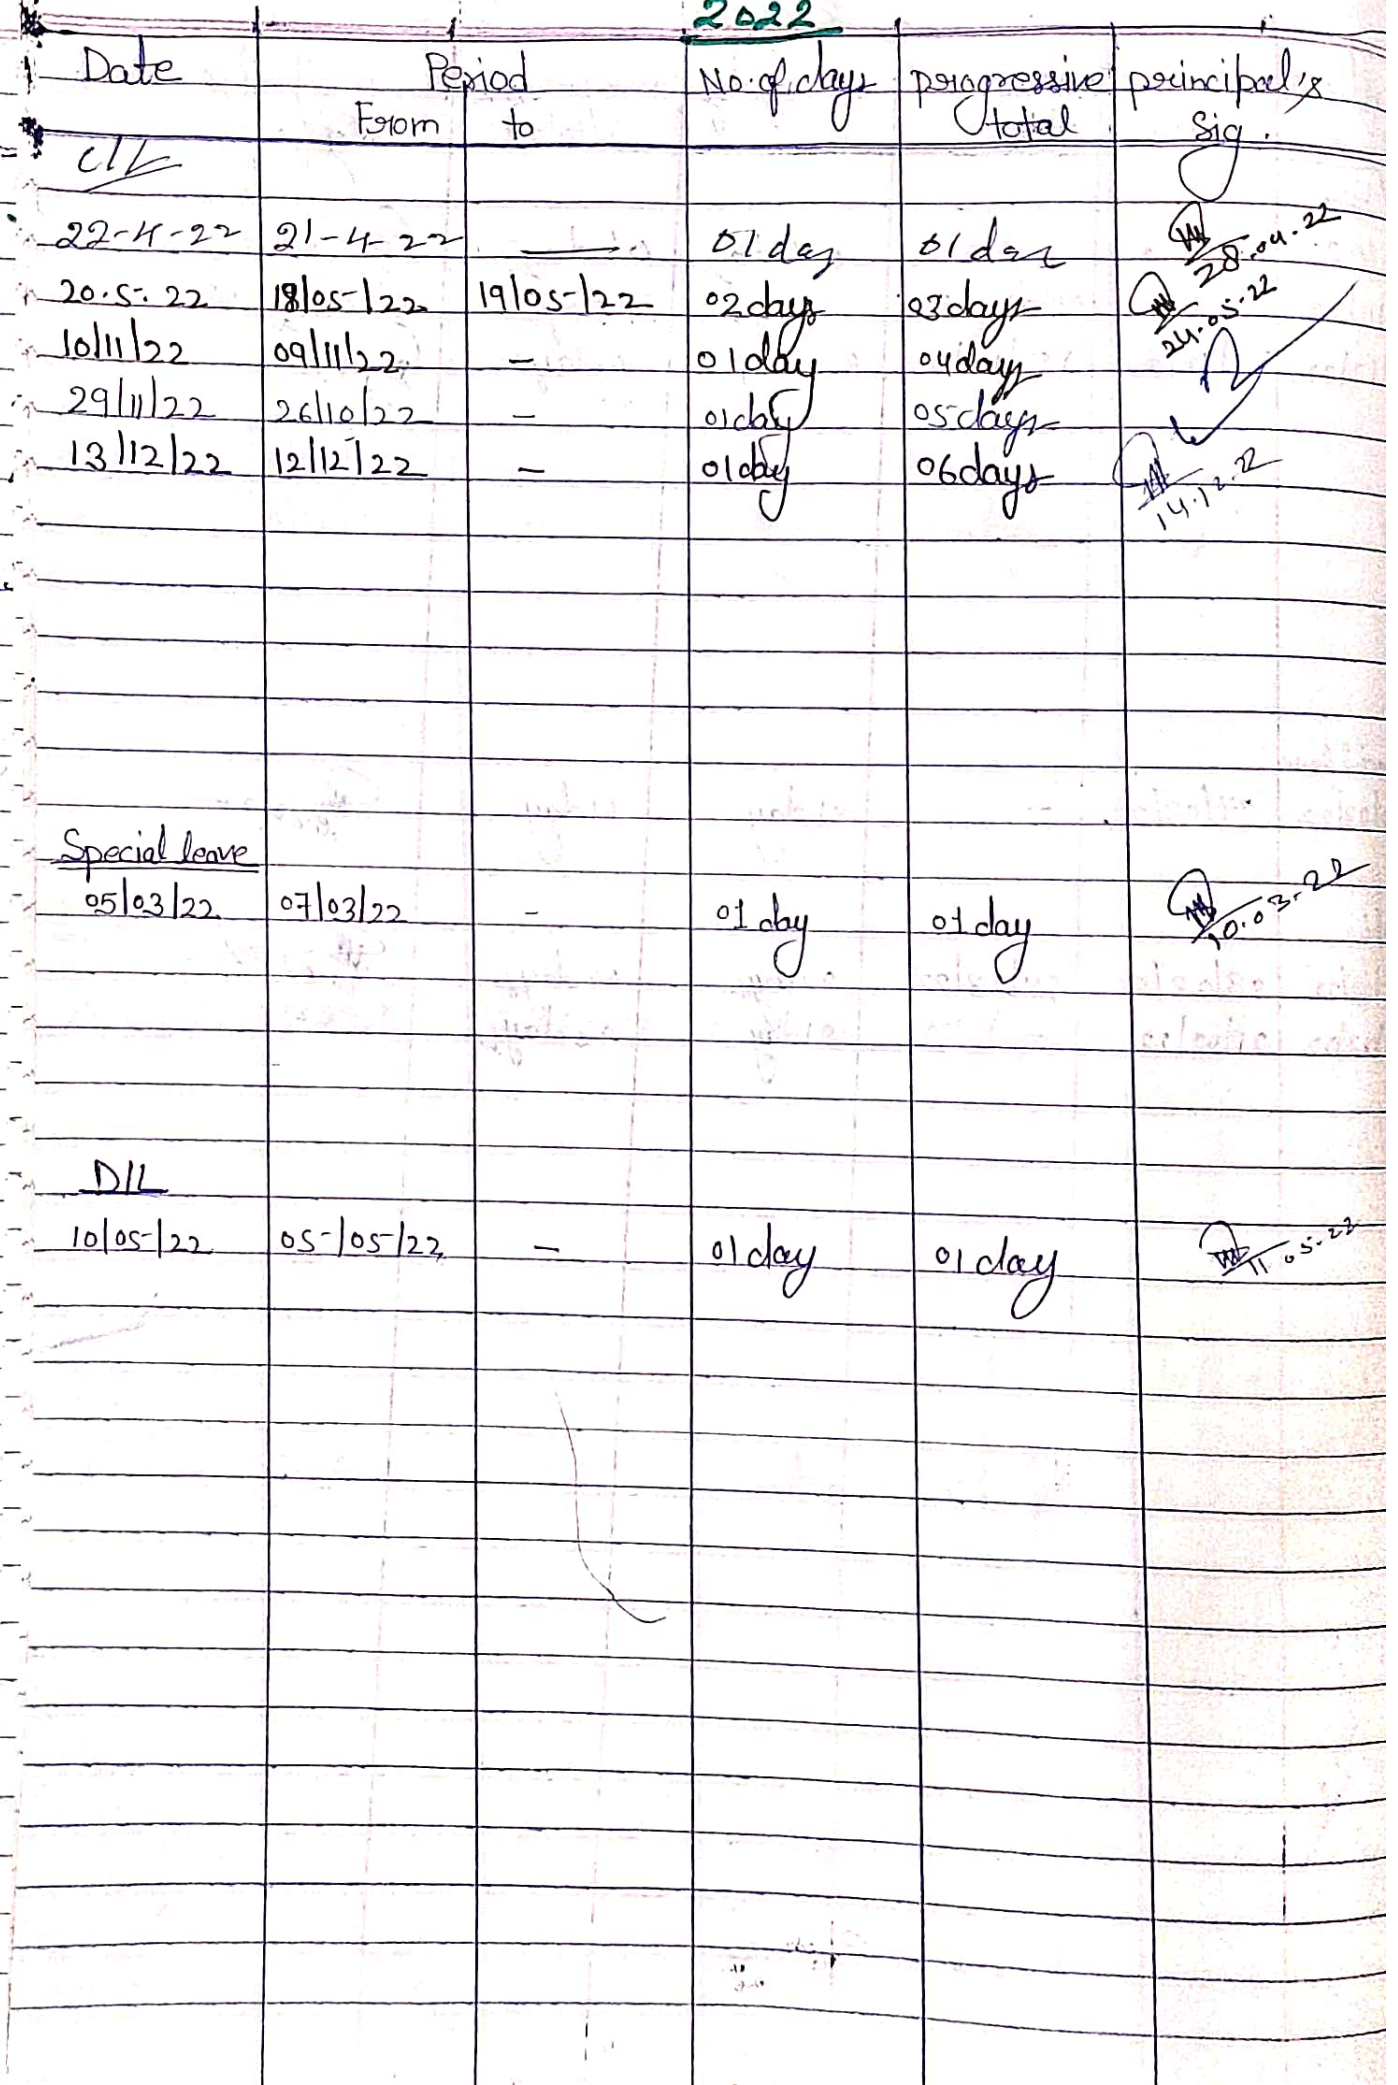 2022
Date Period No. of days progressive principal's
From to total Sig.
C/L
22-4-22 21-4-22 — 01 day 01 day 28.04.22
20.5.22 18/05/22 19/05/22 02 days 03 days 24.05.22
10/11/22 09/11/22 - 01 day 04 days
29/11/22 26/10/22 - 01 day 05 days
13/12/22 12/12/22 - 01 day 06 days 14.12.22
Special leave
05/03/22 07/03/22 - 01 day 01 day 10.03.22
D/L
10/05/22 05/05/22 - 01 day 01 day 11.05.22